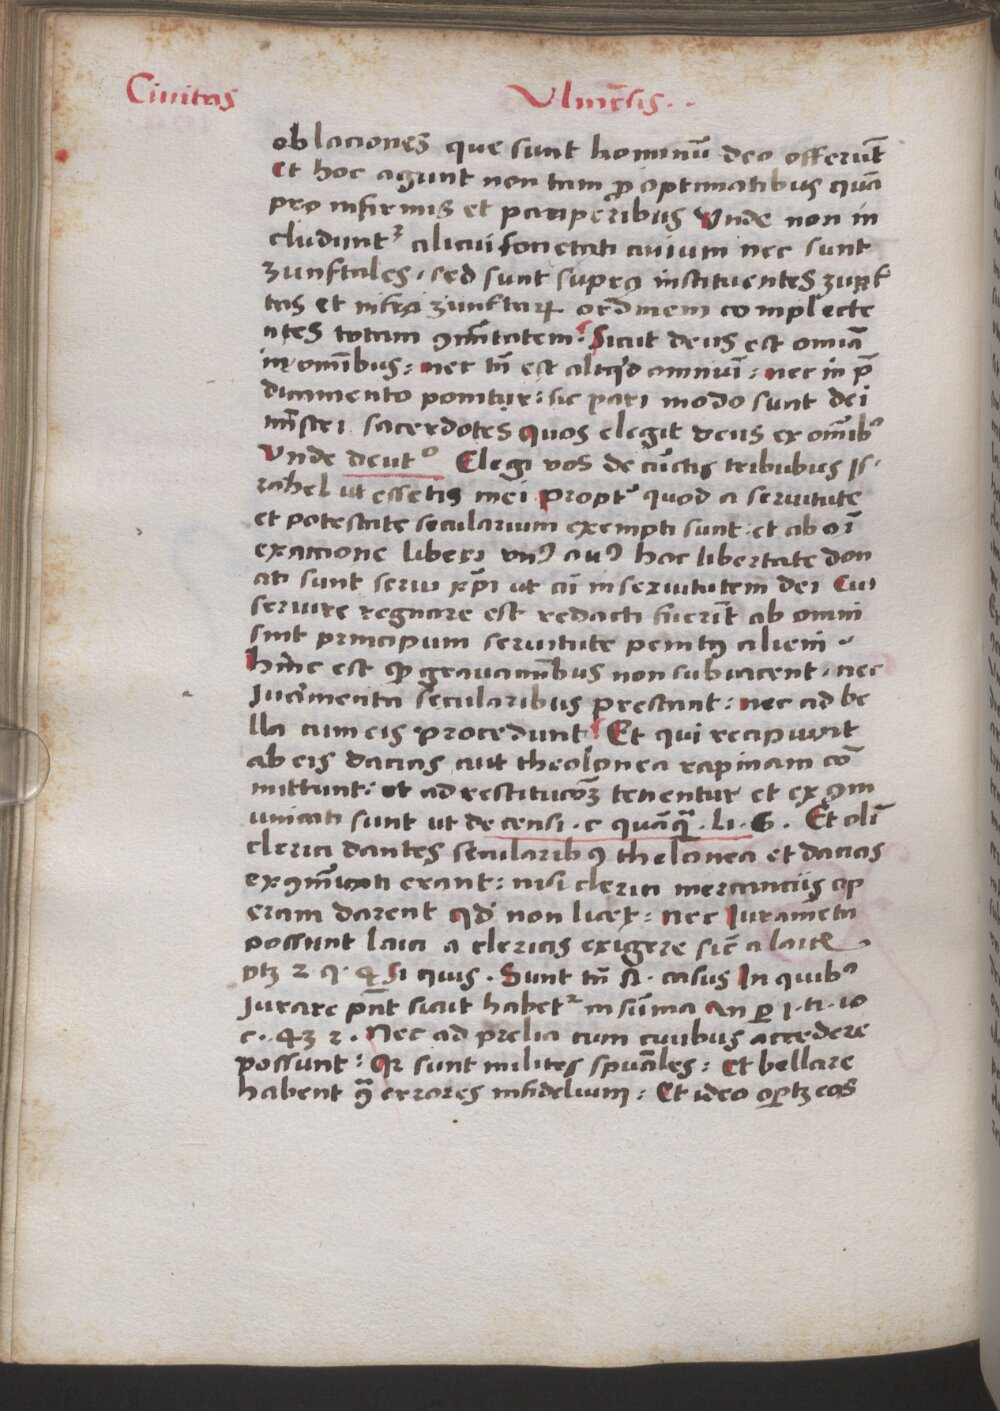 Ciuitas Vlmēsis
oblaciones que sunt hominū deo offerūt
Et hoc agunt non tam ꝓ optimatibus quā
pro infirmis et pauperibus Vnde non in
cludunt᷑ alicui societati ciuium nec sunt
zunftales, sed sunt supra instituentes zunf
tas et infra zunftaꝝ ordinem complecte
ntes totam ꝯmūitatem. Sicut deus est omīa
in omībus: nec tn̄ est aliqd omniū: nec in p̄
dicamento ponitur: sic pari modo sunt dei
mīstri sacerdotes quos elegit deus ex omībꝰ
Vnde deutº Elegi vos de cūctis tribubus Is-
rahel ut essetis mei Proptᷣ quod a seruitute
et potestate secularium exempti sunt et ab oī
exaccione liberi vnꝰ cuiꝰ hac libertate don
ati sunt serui xp̄i ut cū in seruitutem dei Cui
seruire regnare est redacti fuerīt ab omni
sint principum seruitute penitꝰ alieni
hinc est ꝙ grauamībus non subiacent, nec
Juramenta secularibus prestant: nec ad be
lla cum eis procedunt Et qui recipiunt
ab eis dacias aut theolonea rapinam cō
mittunt: et ad restitucōꝫ tenentur et exꝯm
unicati sunt ut de censi. c quāqꝫ. li. 6. Et olī
clerici dantes secularibꝰ thelonea et dacias
exꝯmūicati erant: nisi clerici mercanciis op
eram darent qd non licet: nec Juramēta
possunt laici a clericis exigere sic̄ a laicis
ptꝫ 2 q. 4 Si quis. Sunt tn̄ casus In quibꝰ
Jurare pn̄t sicut habet᷑ in sūma An ꝑ 1. ti. 10
c. 43 2. Nec ad prelia cum ciuibus accedere
possunt: Qr sunt milites spūales: Et bellare
habent ꝯ̄ errores infidelium: Et ideo oꝑtꝫ eos